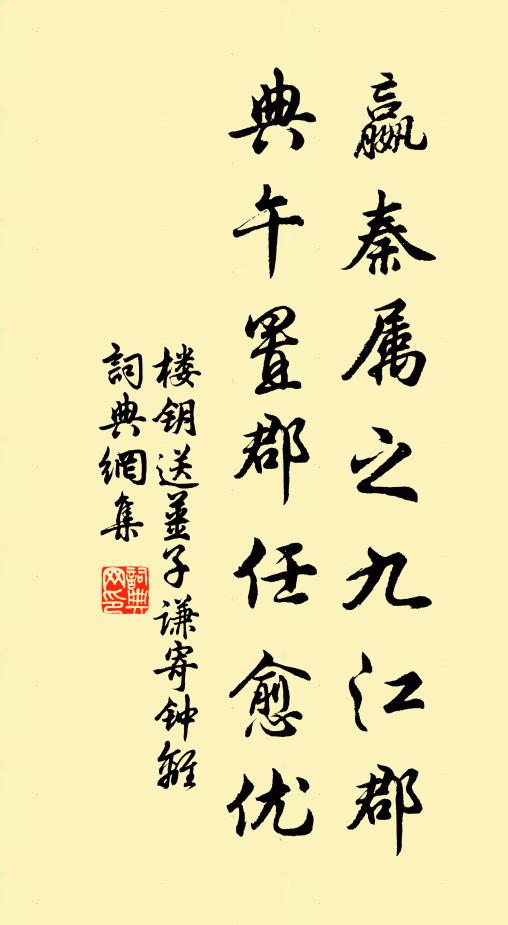 嬴秦属之九江郡
典午置郡任愈优
楼钥送姜子谦寄钟离
詞典網集
詞典網印